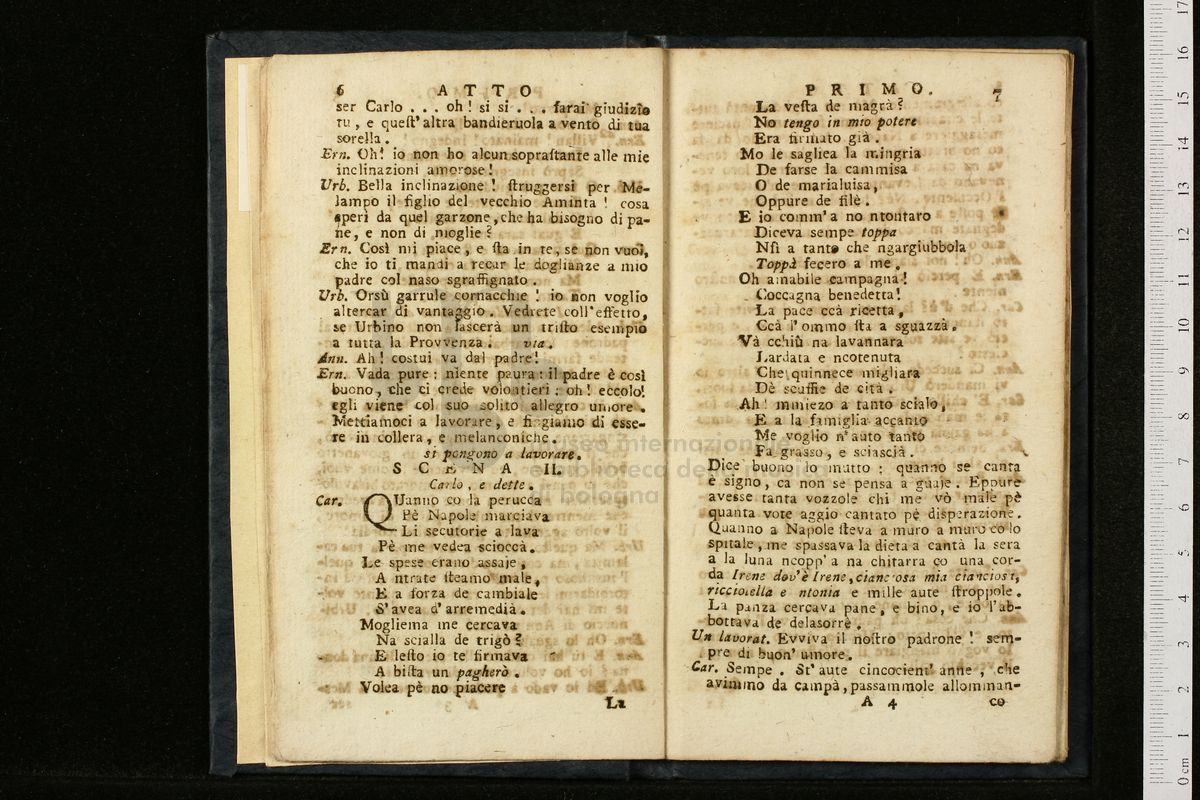 6 ATTO
ser Carlo . . . oh! si si . . . farai giudizio
tu, e quest'altra bandieruola a vento di tua
sorella.
Ern. Oh! io non ho alcun soprastante alle mie
inclinazioni amorose!
Urb. Bella inclinazione! struggersi per Me-
lampo il figlio del vecchio Aminta! cosa
speri da quel garzone, che ha bisogno di pa-
ne, e non di moglie?
Ern. Così mi piace, e sta in te, se non vuoi,
che io ti mandi a recar le doglianze a mio
padre col naso sgraffignato.
Urb. Orsù garrule cornacchie! io non voglio
altercar di vantaggio. Vedrete coll'effetto,
se Urbino non lascerà un tristo esempio
a tutta la Provvenza. via.
Ann. Ah! costui va dal padre!
Ern. Vada pure: niente paura: il padre è così
buono, che ci crede volontieri: oh! eccolo!
egli viene col suo solito allegro umore.
Mettiamoci a lavorare, e fingiamo di esse-
re in collera, e melanconiche.
si pongono a lavorare.
SCENA II.
Carlo, e dette.
Car. QUanno co la perucca
Pè Napole marciava
Li secutorie a lava
Pè me vedea scioccà.
Le spese erano assaje,
A ntrate steamo male,
E a forza de cambiale
S'avea d'arremedià.
Mogliema me cercava
Na scialla de trigò?
E lesto io te firmava
A bista un pagherò.
Volea pè no piacere
La
PRIMO. 7
La vesta de magrà?
No tengo in mio potere
Era firmato già.
Mo le sagliea la mingria
De farse la cammisa
O de marialuisa,
Oppure de filè.
E io comm'a no ntontaro
Diceva sempe toppa
Nsì a tanto che ngargiubbola
Toppà fecero a me.
Oh amabile campagna!
Coccagna benedetta!
La pace ccà ricetta,
Ccà l'ommo sta a sguazzà.
Và cchiù na lavannara
Lardata e ncotenuta
Che quinnece migliara
Dè scuffie de cità.
Ah! mmiezo a tanto scialo,
E a la famiglia accanto
Me voglio n'auto tanto
Fa grasso, e sciascià.
Dice buono lo mutto: quanno se canta
è signo, ca non se pensa a guaje. Eppure
avesse tanta vozzole chi me vò male pè
quanta vote aggio cantato pè disperazione.
Quanno a Napole steva a muro a muro co lo
spitale, me spassava la dieta a cantà la sera
a la luna ncopp'a na chitarra co una cor-
da Irene dov'è Irene, cianciosa mia cianciosi,
ricciolella e ntonia e mille aute stroppole.
La panza cercava pane, e bino, e io l'ab-
bottava de delasorrè.
Un lavorat. Evviva il nostro padrone! sem-
pre di buon' umore.
Car. Sempe. St'aute cincocient' anne, che
avimmo da campà, passammole allomman-
A 4 co
museo internazionale
e biblioteca della musica
di bologna
17
16
15
14
13
12
11
10
9
8
7
6
5
4
3
2
1
0 cm